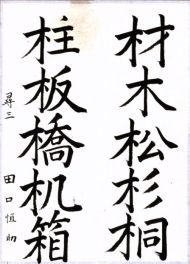 材木松杉桐
柱板橋机箱
尋三 田口恒助